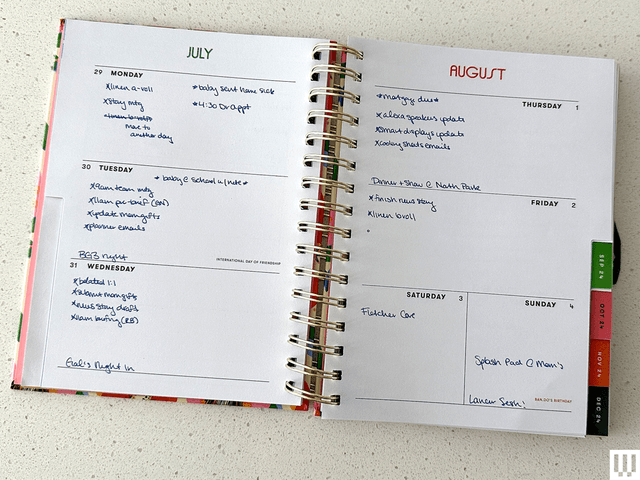 JULY
29 MONDAY
*linen a-roll
*stay mtg
move to
another day
*baby sent home sick
*4:30 Dr appt
30 TUESDAY
*baby @ school w/ note*
*9am team mtg
*11am pre-brief (BN)
*update mom gifts
*planner emails
BG3 night
INTERNATIONAL DAY OF FRIENDSHIP
31 WEDNESDAY
*belated 1:1
*submit mom gifts
*news story drafts
*11am briefing (RB)
Gal's Night In
AUGUST
THURSDAY 1
*mortgage due*
*alexa speakers update
*smart displays update
*cooling sheets emails
Dinner + Show @ North Park
FRIDAY 2
*finish news story
*linen b-roll
SATURDAY 3
Fletcher Cove
SUNDAY 4
Splash Pad @ Mom's
Lancer Sesh!
BAN.DO'S BIRTHDAY
SEP 24
OCT 24
NOV 24
DEC 24